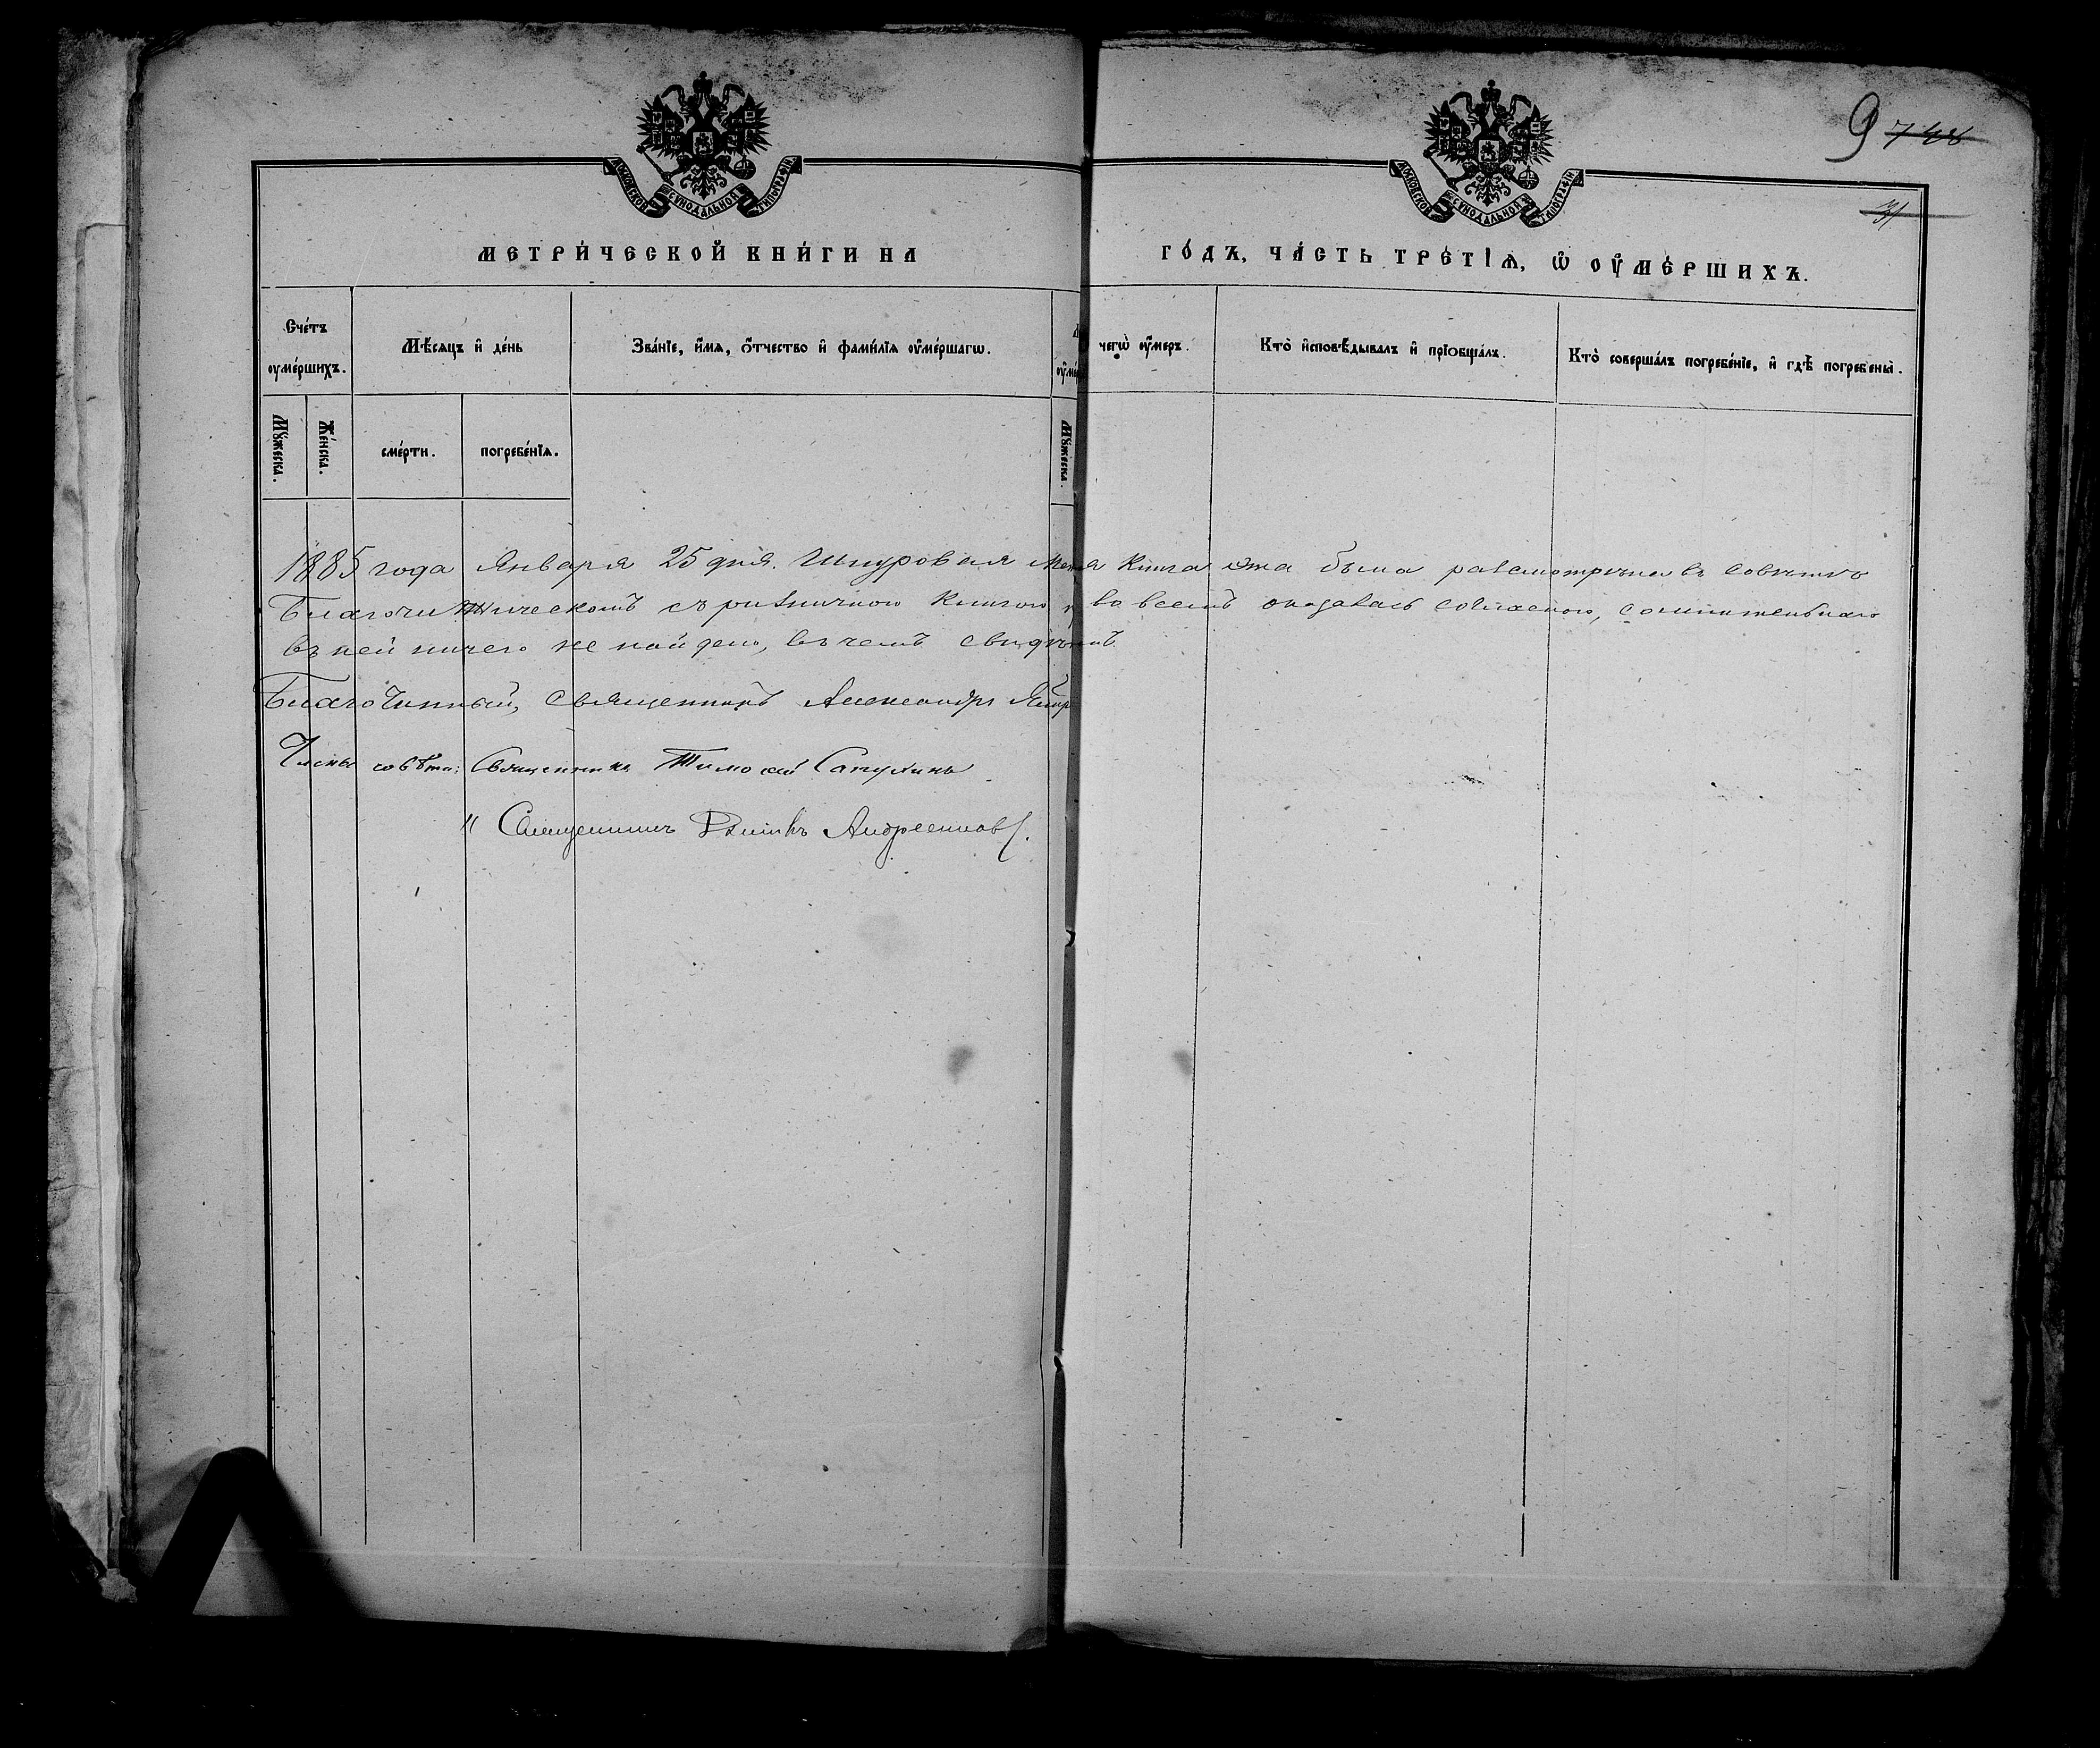 МОСКОВСКОЙ СѴНОДАЛЬНОЙ ТИПОГРАФІИ
МОСКОВСКОЙ СѴНОДАЛЬНОЙ ТИПОГРАФІИ
9 748
31
МЕТРИ́ЧЕСКОЙ КНИ́ГИ НА
ГО́ДЪ, ЧА́СТЬ ТРЕ́ТІѦ, Ѡ҆ ОУ҆МЕ́РШИХЪ.
Сче́тъ оу҆ме́ршихъ.
Мѣ́сяцъ и҆ де́нь
Зва́нїе, и҆́мѧ, ѻ҆́тчество и҆ фами́лїѧ оу҆ме́ршагѡ.
чегѡ̀ оу҆́меръ.
Кто̀ и҆сповѣ́дывалъ и҆ прїобща́лъ.
Кто̀ соверша́лъ погребе́нїе, и҆ гдѣ̀ погребены̀.
Мꙋ́жеска.
Же́нска.
сме́рти.
погребе́нїѧ.
Мꙋ́жеска.
1885 года Января 25 дня. Шнуровая книга эта была разсмотрѣна въ совѣтѣ
Благочинническомъ съ ризничною книгою во всемъ оказалась согласною, сомнительнаго
въ ней ничего не найдено, въ чемъ свидѣт
Благочинный, священникъ Александръ
Члены совѣта: Священникъ Тимоѳей
" Священникъ Андреенков